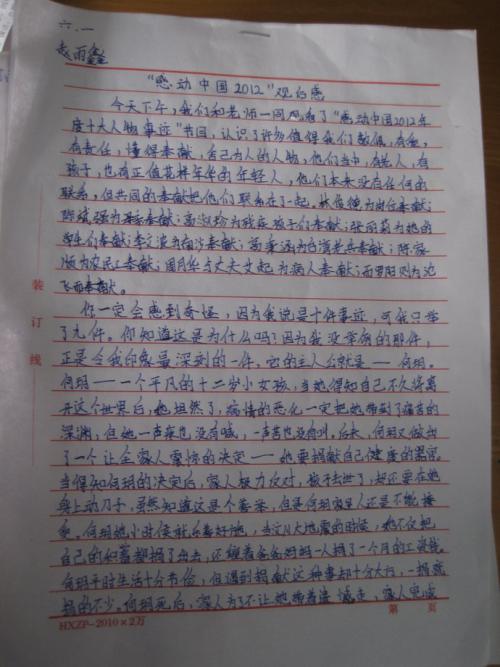 六.一
赵雨鑫
“感动中国2012”观后感
今天下午,我们和老师一同观看了“感动中国2012年
度十大人物事迹”节目,认识了许多值得我们敬佩,有爱,
有责任,懂得奉献,自己为人的人物,他们当中,有老人,有
孩子,也有正值花样年华的年轻人,他们本来没有任何的
联系,但共同的奉献把他们联系在了一起,林俊德为岗位奉献;
陈斌强为母亲奉献;高淑珍为残疾孩子们奉献;张丽莉为她的
学生们奉献;李文波为南沙奉献;高秉涵为台湾老兵奉献;陈家
顺为农民工奉献;周月华与丈夫艾起为病人奉献;而罗阳则为沈
飞而奉献。
你一定会感到奇怪,因为我说是十件事迹,可我只举
了九件。你知道这是为什么吗?因为我没举例的那件,
正是令我印象最深刻的一件,它的主人公就是——何玥。
何玥——一个平凡的十二岁小女孩,当她得知自己不久将离
开这个世界后,她坦然了,病情的恶化一定把她带到了痛苦的
深渊,但她一声疼也没有喊,一声苦也没有叫。后来,何玥又做出
了一个让全家人震惊的决定——她要捐献自己健康的器官。
当得知何玥的决定后,家人极力反对,孩子去世了,却还要在她
身上动刀子,虽然知道这是个善举,但是何玥家人还是不能接
受。何玥她小时候就乐善好施,当汶川大地震的时候,她不仅把
自己的积蓄都捐了出去,还缠着爸爸妈妈一人捐了一个月的工资钱。
何玥平时生活十分节俭,但遇到捐献这种事却十分大方,一捐就
捐的不少。何玥死后,家人为了不让她带着遗憾走,家人完成
装
订
线
HXZP-2010×2万
第 页